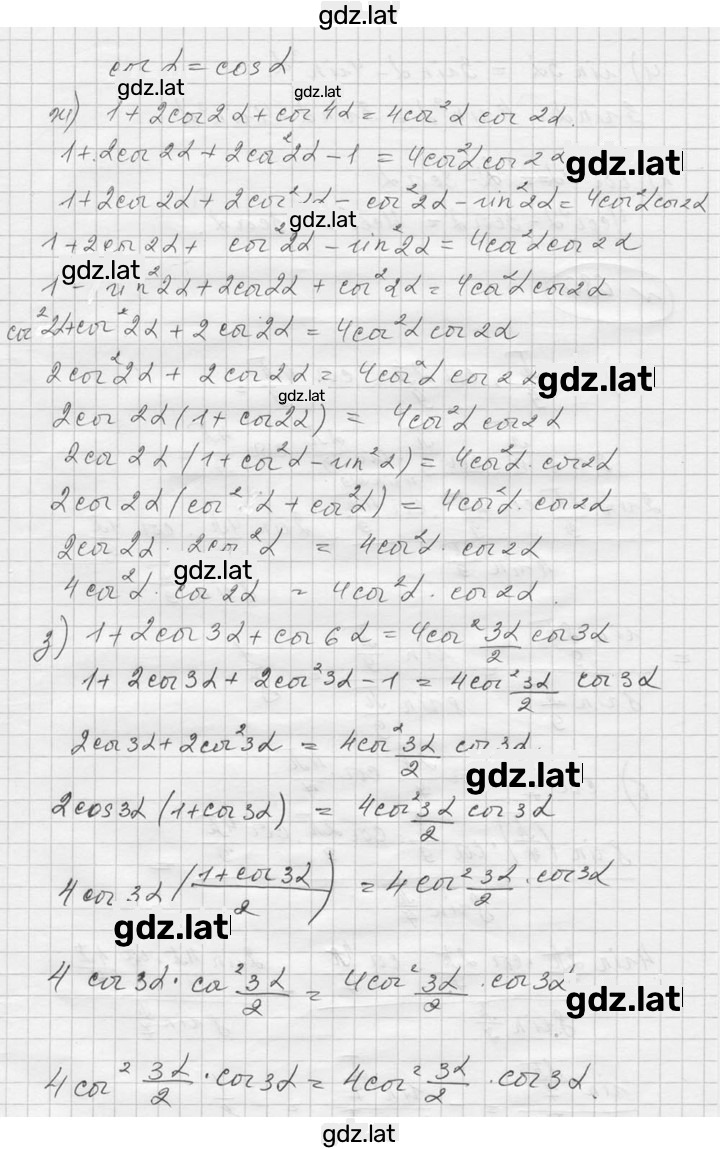 gdz.lat
cos α = cos α
gdz.lat gdz.lat
ж) 1 + 2cos 2α + cos 4α = 4cos²α cos 2α.
1 + 2cos 2α + 2cos²2α − 1 = 4cos²α cos 2α
gdz.lat
1 + 2cos 2α + 2cos²2α − cos²2α − sin²2α = 4cos²α cos 2α
gdz.lat
1 + 2cos 2α + cos²2α − sin²2α = 4cos²α cos 2α
gdz.lat
1 − sin²2α + 2cos 2α + cos²2α = 4cos²α cos 2α
cos²2α + cos²2α + 2cos 2α = 4cos²α cos 2α
2cos²2α + 2cos 2α = 4cos²α cos 2α
gdz.lat
gdz.lat
2cos 2α (1 + cos 2α) = 4cos²α cos 2α
2cos 2α (1 + cos²α − sin²α) = 4cos²α · cos 2α
2cos 2α (cos²α + cos²α) = 4cos²α · cos 2α
2cos 2α · 2cos²α = 4cos²α · cos 2α
gdz.lat
4cos²α · cos 2α = 4cos²α · cos 2α.
з) 1 + 2cos 3α + cos 6α = 4cos² 3α/2 cos 3α
1 + 2cos 3α + 2cos²3α − 1 = 4cos² 3α/2 cos 3α
2cos 3α + 2cos²3α = 4cos² 3α/2 cos 3α.
gdz.lat
2cos 3α (1 + cos 3α) = 4cos² 3α/2 cos 3α
4cos 3α ((1 + cos 3α)/2) = 4cos² 3α/2 · cos 3α
gdz.lat
4 cos 3α · cos² 3α/2 = 4cos² 3α/2 · cos 3α
gdz.lat
4cos² 3α/2 · cos 3α = 4cos² 3α/2 · cos 3α.
gdz.lat